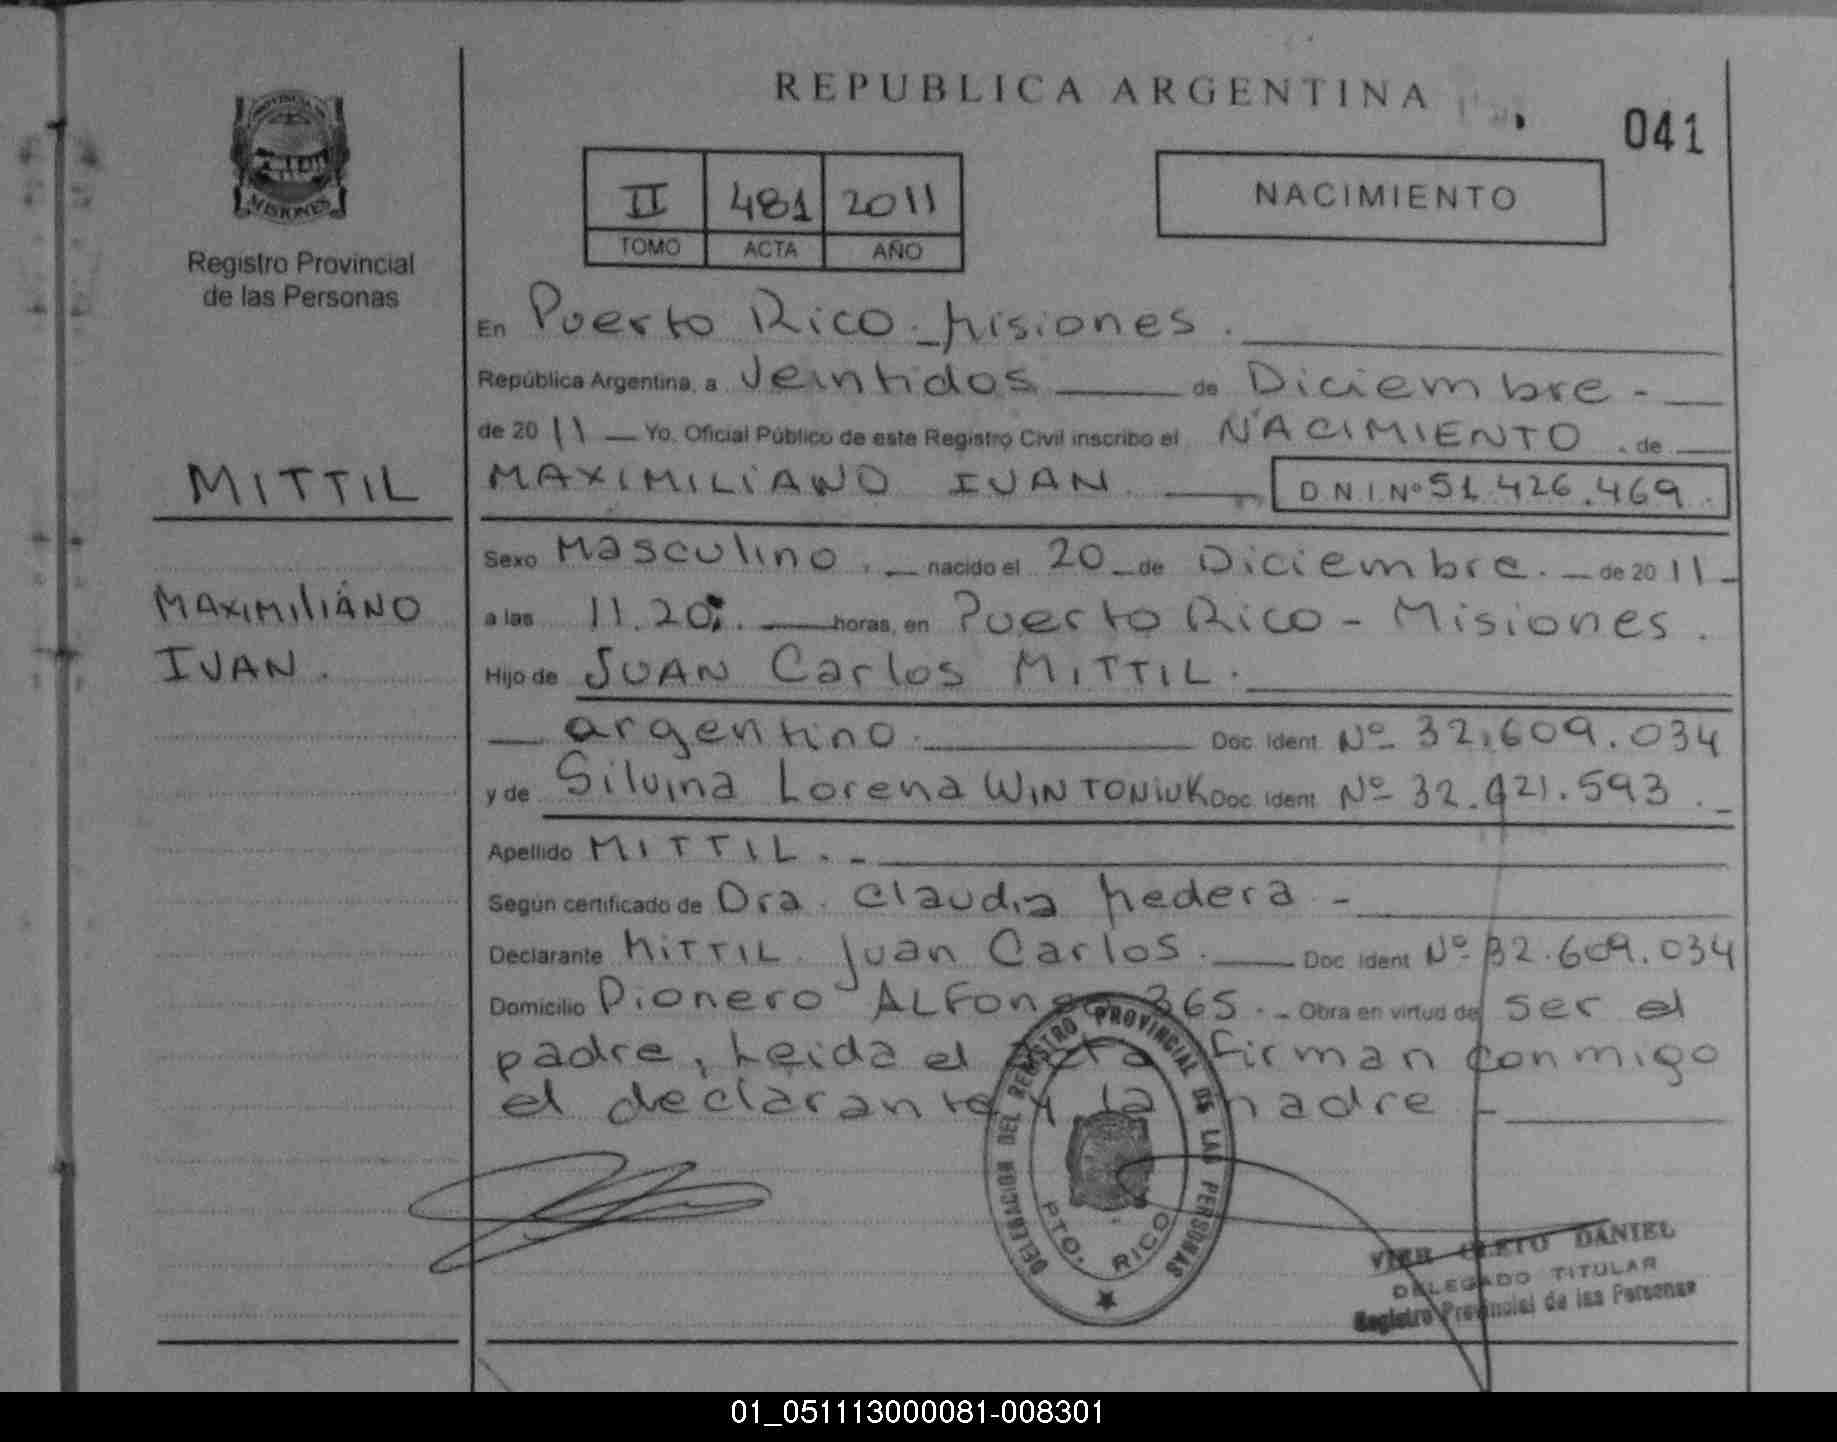 REPUBLICA ARGENTINA
041
PROVINCIA DE
MISIONES
Registro Provincial
de las Personas
II 481 2011
TOMO ACTA AÑO
NACIMIENTO
En Puerto Rico. Misiones.
República Argentina, a Veintidos de Diciembre -
de 2011 Yo, Oficial Público de este Registro Civil inscribo el NACIMIENTO de
MITTIL
MAXIMILIANO IVAN. D.N.I Nº 51.426.469.
Sexo Masculino. nacido el 20 de Diciembre. de 2011
MAXIMILIANO
IVAN.
a las 11.20. horas, en Puerto Rico - Misiones.
Hijo de JUAN Carlos MITTIL.
argentino. Doc. Ident. Nº 32.609.034
y de Silvina Lorena WINTONIUK Doc. Ident. Nº 32.921.593.
Apellido MITTIL. -
Según certificado de Dra. Claudia Medera -
Declarante MITTIL Juan Carlos. Doc. Ident. Nº 32.609.034
Domicilio Pionero ALFonso 365. - Obra en virtud de ser el
padre, Leida el Acta Firman conmigo
el declarante y la Madre -
DELEGACION DEL REGISTRO PROVINCIAL DE LAS PERSONAS
PTO. RICO
VIER CLETO DANIEL
DELEGADO TITULAR
Registro Provincial de las Personas
01_051113000081-008301